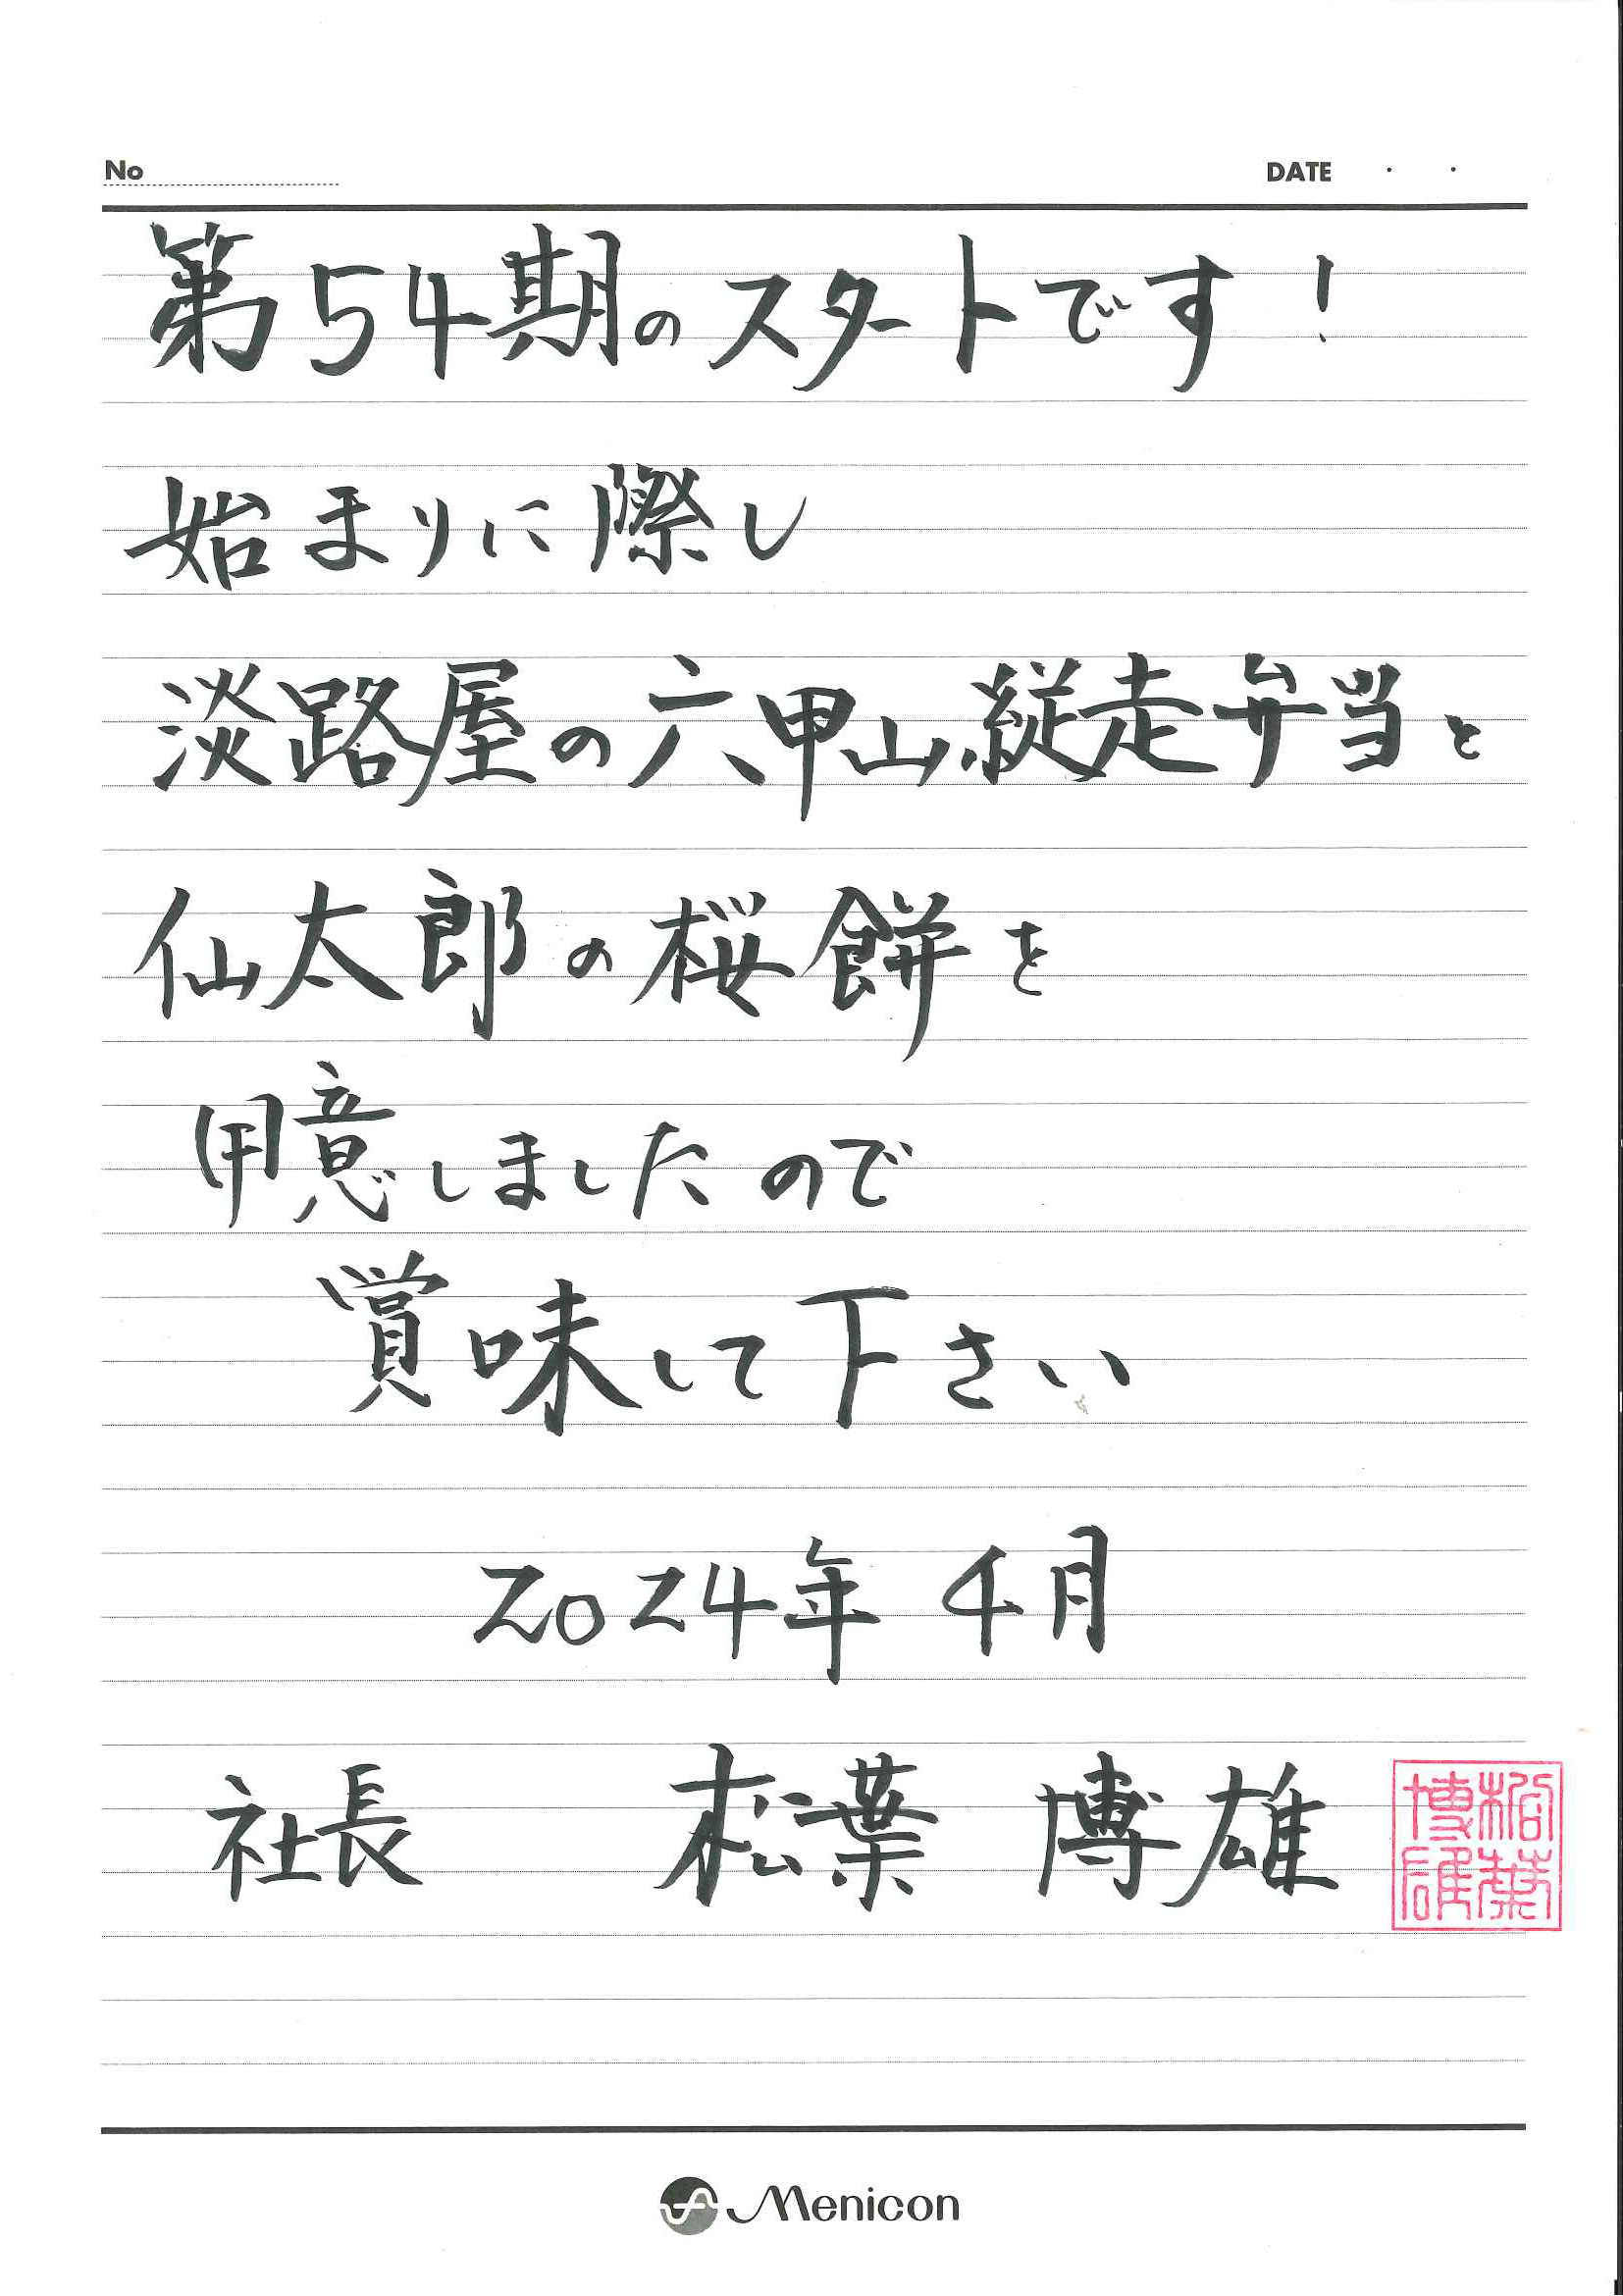 No
DATE ・ ・
第54期のスタートです！
始まりに際し
淡路屋の六甲山縦走弁当と
仙太郎の桜餅を
用意しましたので
賞味して下さい
2024年 4月
社長 松葉 博雄
松葉博雄
Menicon